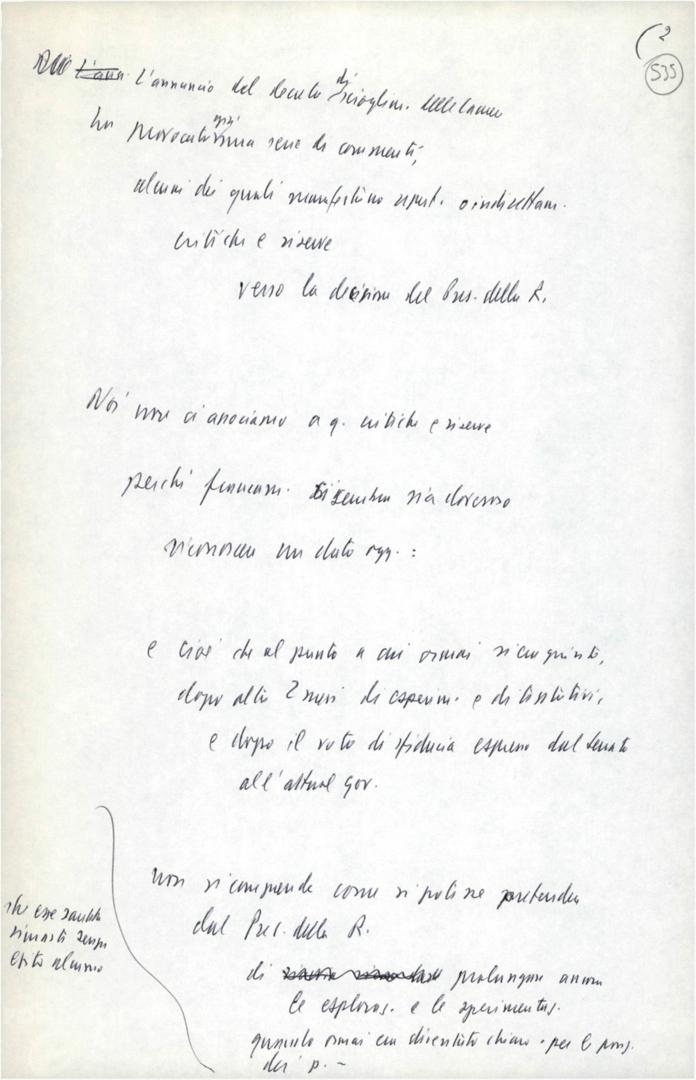 (2
535
L'annuncio del decreto di scioglim. delle Camere
ha provocato una serie di commenti,
alcuni dei quali manifestano apert. o indirettam.
critiche e riserve
verso la decisione del Pres. della R.
Noi non ci associamo a q. critiche e riserve
perché francam. ci sembra sia doveroso
riconoscere un dato ogg. :
e cioè che al punto a cui ormai si era giunti,
dopo altri 2 mesi di esperim. e di tentativi,
e dopo il voto di sfiducia espresso dal Senato
all'attual gov.
non si comprende come si potesse pretendere
dal Pres. della R.
di prolungare ancora
le esploraz. e le sperimentaz.
quando ormai era diventato chiaro - per le pos.
dei p. -
che esse sarebb.
rimaste senza
esito alcuno